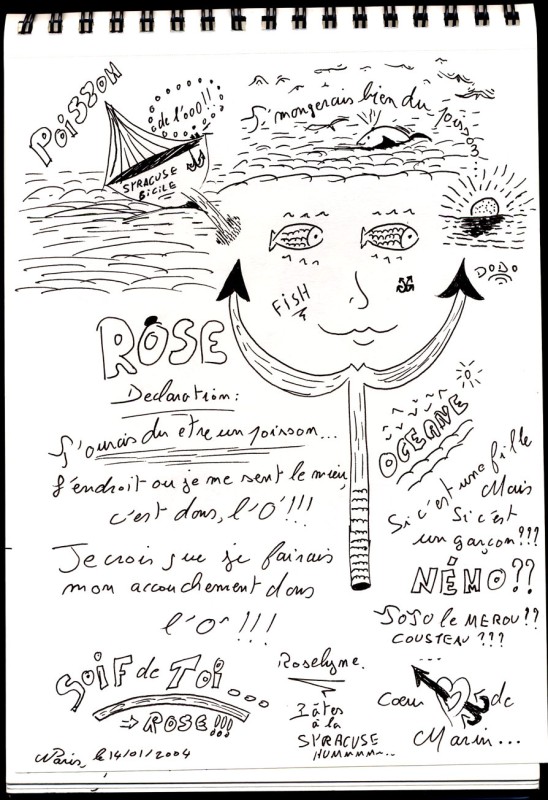 Poisson
de l'ooO!!
J'mangerais bien du poisson...
SYRACUSE
SICILE
DODO
FISH
ROSE
Declaration:
J'aurais du etre un poisson...
L'endroit ou je me sent le mieu,
c'est dans, l'O'!!!
Je crois que je fairais
mon accouchement dans
l'O^!!!
OCEANE
Si c'est une fille
Mais
Si c'est
un garçon???
NÉMO??
JOJO le MEROU??
COUSTEAU???
...
SOIF de TOI...
⇒ ROSE!!!
Roselyne.
Pâtes
à la
SYRACUSE
HUMMMM...
Coeur de
Marin...
Paris, le 14/01/2004